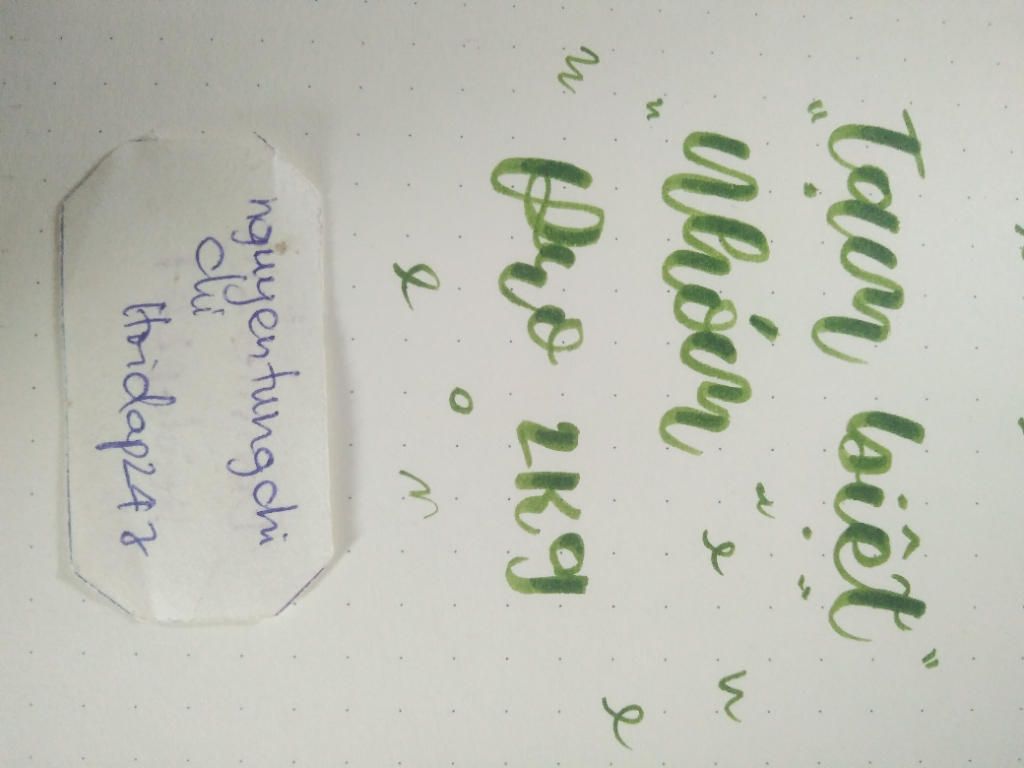 "Tạm biệt"
"Nhóm"
Pro 2kg
nguyentungchi
chi
Hoidap247